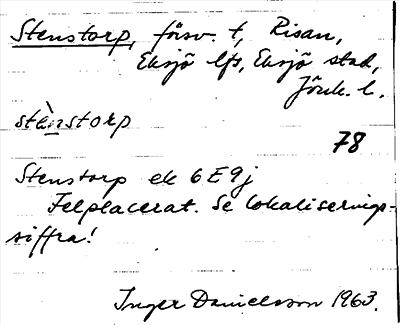 Stenstorp, försv. t, Risan,
Eksjö lfs, Eksjö stad,
Jönk. l.
stὰnstorp
78
Stenstorp ek 6E9j
Felplacerat. Se lokaliserings-
siffra!
Inger Danielsson 1963.